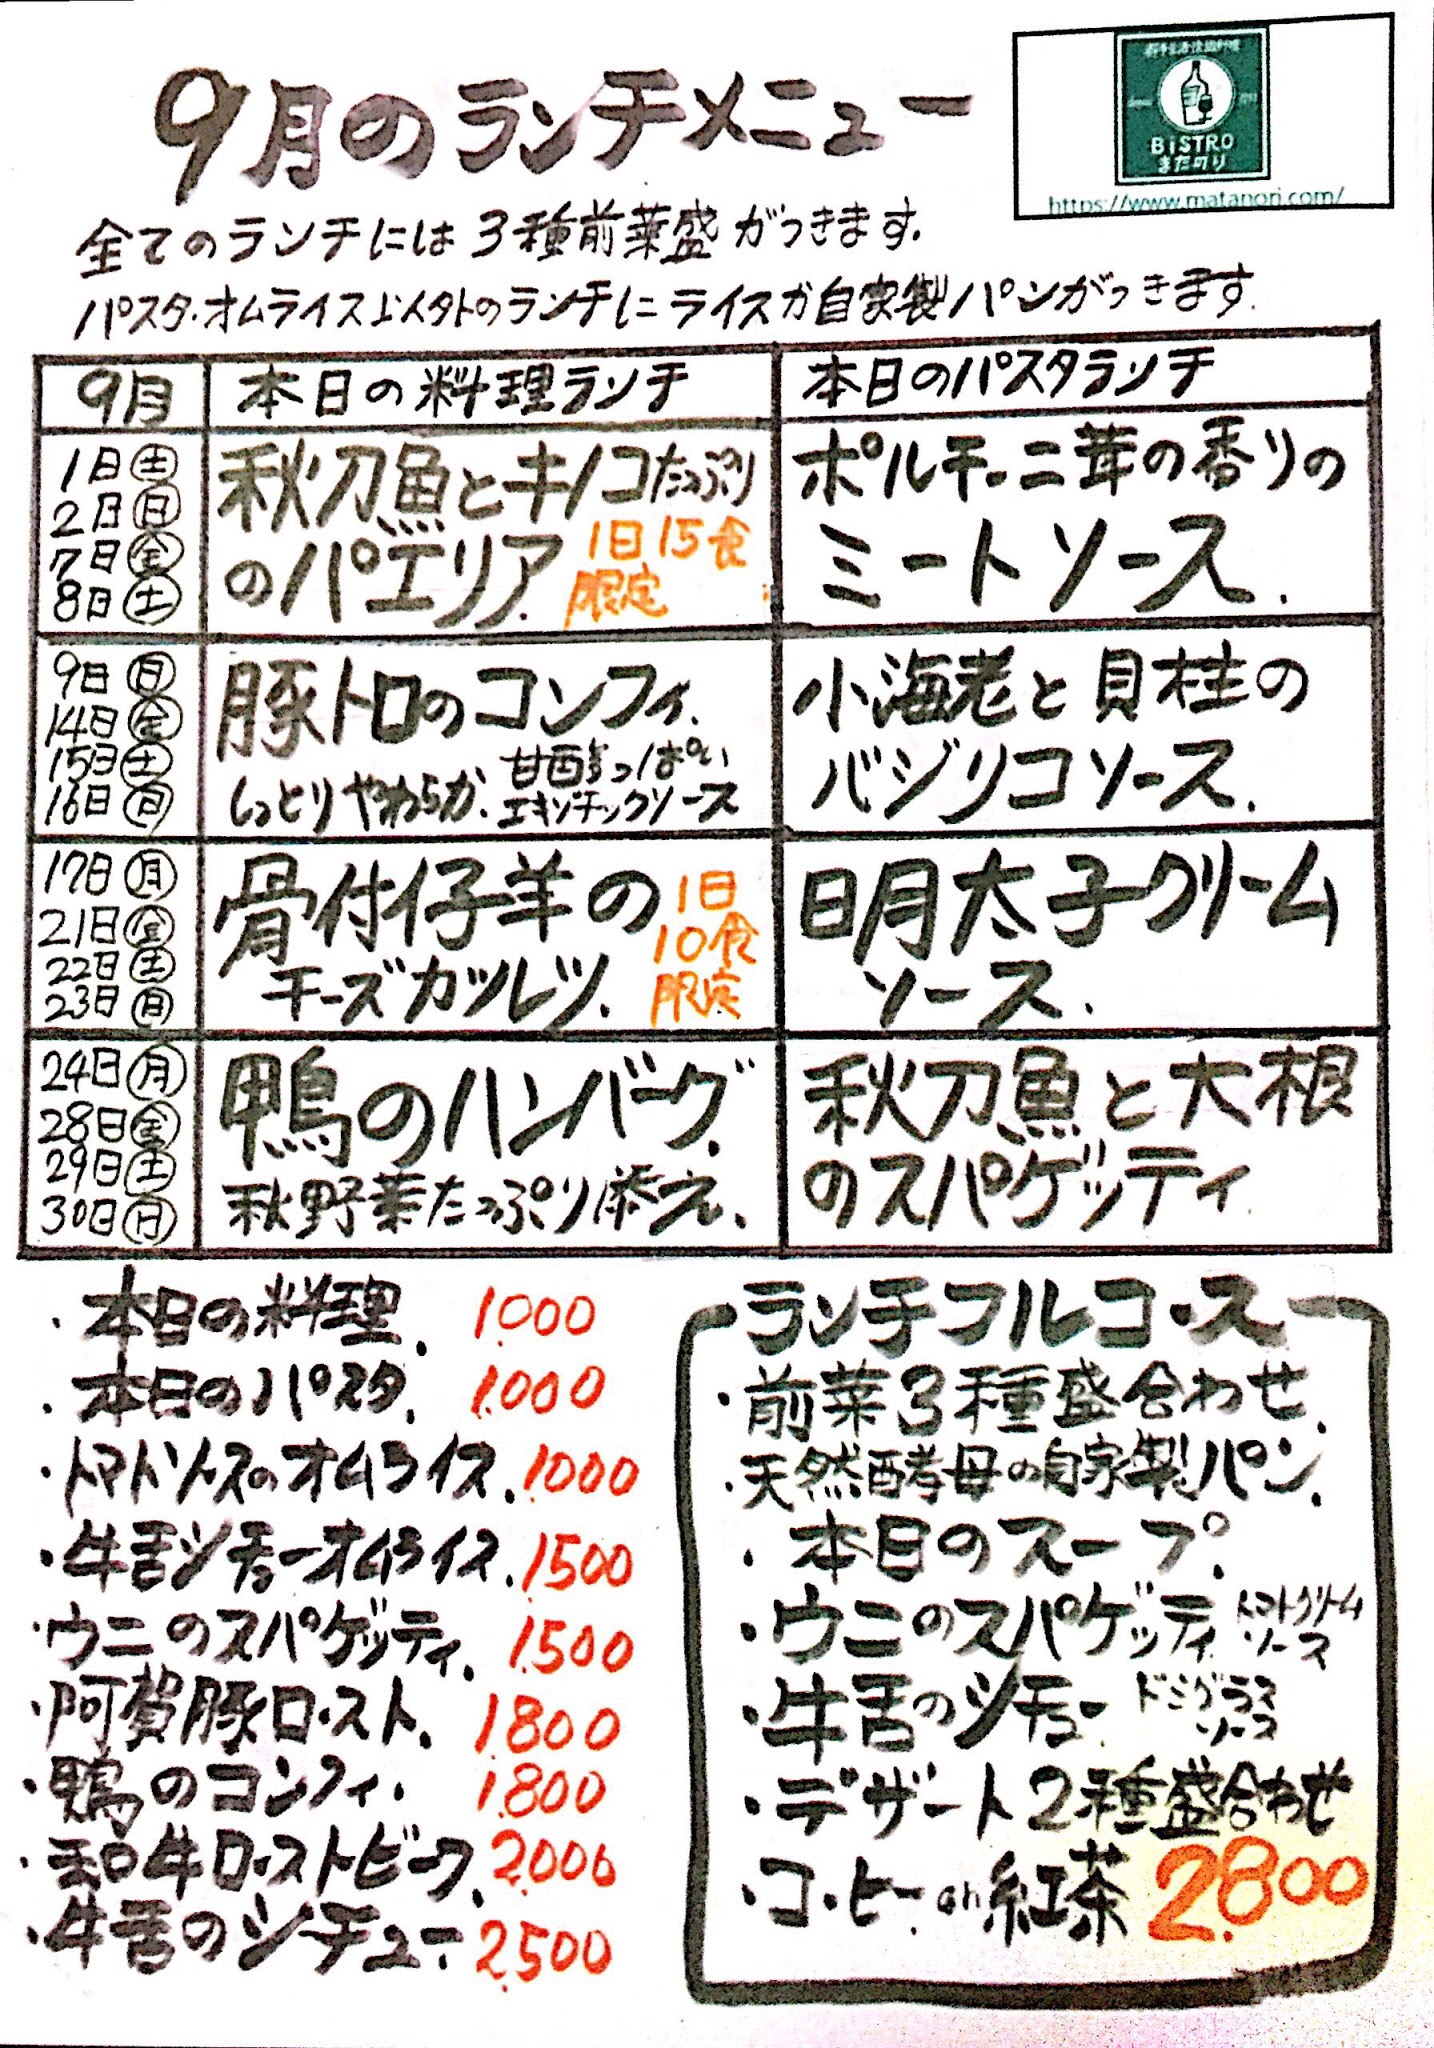 9月のランチメニュー
BiSTRO
またのり
https://www.matanori.com/
全てのランチには3種前菜盛がつきます.
パスタ・オムライス以外のランチにライスか自家製パンがつきます.
9月
本日の料理ランチ
本日のパスタランチ
1日㊏
2日㊐
7日㊎
8日㊏
秋刀魚とキノコたっぷり
のパエリア.
1日15食
限定
ポルチーニ茸の香りの
ミートソース.
9日㊐
14日㊎
15日㊏
16日㊐
豚トロのコンフィ.
しっとりやわらか.
甘酸っぱい
エキゾチックソース
小海老と貝柱の
バジリコソース.
17日㊊
21日㊎
22日㊏
23日㊐
骨付仔羊の
チーズカツレツ.
1日
10食
限定
明太子クリーム
ソース.
24日㊊
28日㊎
29日㊏
30日㊐
鴨のハンバーグ.
秋野菜たっぷり添え.
秋刀魚と大根
のスパゲッティ
・本日の料理. 1.000
・本日のパスタ. 1.000
・トマトソースのオムライス. 1.000
・牛舌シチューオムライス. 1.500
・ウニのスパゲッティ. 1.500
・阿賀豚ロースト. 1.800
・鴨のコンフィ. 1.800
・和牛ローストビーフ. 2.000
・牛舌のシチュー 2.500
ランチフルコース
・前菜3種盛合わせ.
・天然酵母の自家製パン.
・本日のスープ.
・ウニのスパゲッティ トマトクリーム
ソース
・牛舌のシチュー ドミグラス
ソース
・デザート2種盛合わせ
・コーヒー or 紅茶 2.800